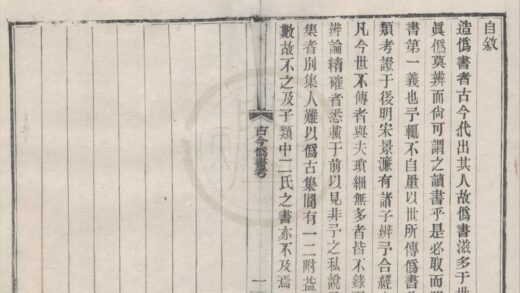 自敘
造僞書者古今代出其人故僞書滋多于世
眞僞莫辨而尙可謂之讀書乎是必取而
書第一義也予輒不自量以世所傳僞書
類考證于後明宋景濂有諸子辨予合經
凡今世不傳者與夫瑣細無多者皆不錄
辨論精確者悉載于前以見非予之私說
集者別集人難以僞古集閒有一二附益
數故不之及子類中二氏之書亦不及焉
古今僞書考
一